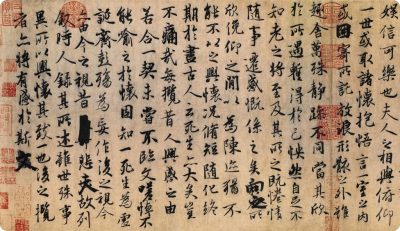 娛信可樂也夫人之相與俯仰
一世或取諸懷抱悟言一室之內
或因寄所託放浪形骸之外雖
趣舍萬殊靜躁不同當其欣
於所遇暫得於己怏然自足不
知老之將至及其所之既惓情
隨事遷感慨係之矣向之所
欣俛仰之閒以為陳迹猶不
能不以之興懷況脩短隨化終
期於盡古人云死生亦大矣豈
不痛哉每攬昔人興感之由
若合一契未嘗不臨文嗟悼不
能喻之於懷固知一死生為虛
誕齊彭殤為妄作後之視今
亦由今之視昔悲夫故列
敘時人錄其所述雖世殊事
異所以興懷其致一也後之攬
者亦將有感於斯文